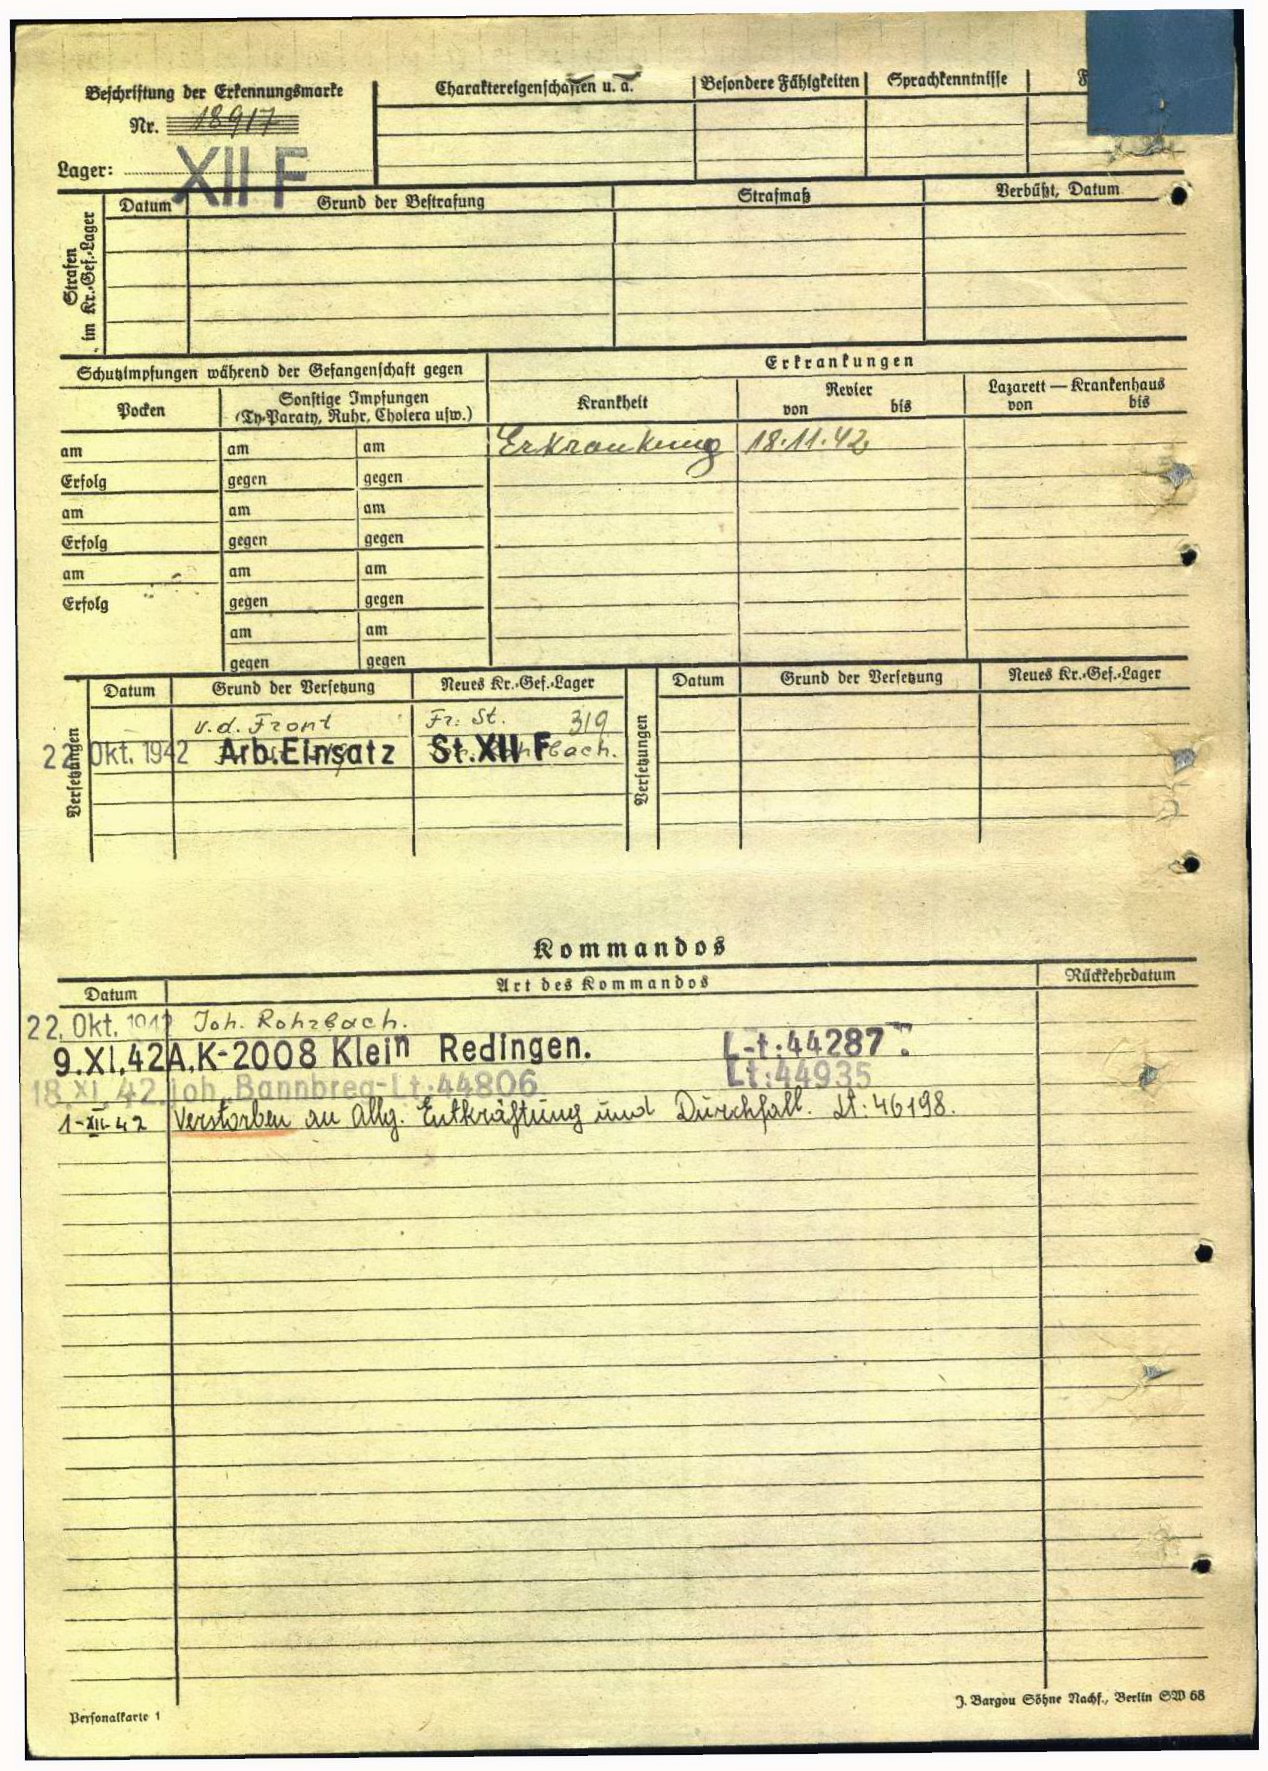 Beschriftung der Erkennungsmarke
Nr. 18917
Lager: XII F
Charaktereigenschaften u. a.
Besondere Fähigkeiten
Sprachkenntnisse
F
Strafen im Kr.-Gef.-Lager
Datum
Grund der Bestrafung
Strafmaß
Verbüßt, Datum
Schutzimpfungen während der Gefangenschaft gegen
Erkrankungen
Pocken
Sonstige Impfungen
(Ty-Paraty, Ruhr, Cholera usw.)
Krankheit
Revier
von bis
Lazarett — Krankenhaus
von bis
am am am Erkrankung 18.11.42
Erfolg gegen gegen
am am am
Erfolg gegen gegen
am am am
Erfolg gegen gegen
am am
gegen gegen
Versetzungen
Datum Grund der Versetzung Neues Kr.-Gef.-Lager
Versetzungen
Datum Grund der Versetzung Neues Kr.-Gef.-Lager
v.d. Front Fr. St. 319
22 Okt. 1942 Arb.Einsatz St.XII F
Kommandos
Datum Art des Kommandos Rückkehrdatum
22. Okt. 1942 Joh. Rohrbach.
9.XI.42 A.K-2008 Klein Redingen. L-t:44287.
18 XI. 42. Joh. Bannbreg-Lt:44806 Lt:44935
1-XII-42 Verstorben an allg. Entkräftung und Durchfall. Lt: 46198.
Personalkarte 1
J. Bargou Söhne Nachf., Berlin SW 68